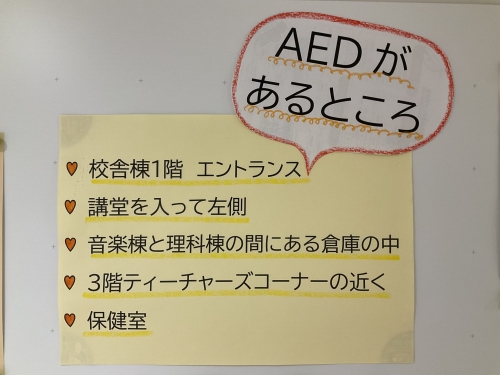 AEDが
あるところ
校舎棟1階 エントランス
講堂を入って左側
音楽棟と理科棟の間にある倉庫の中
3階ティーチャーズコーナーの近く
保健室